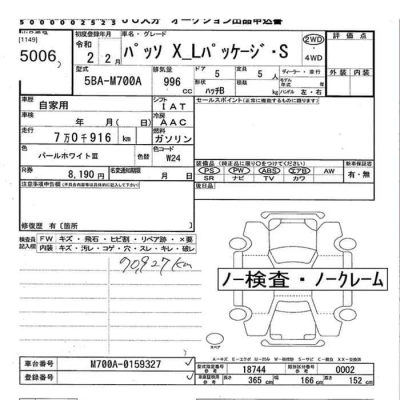 5000002525 オークション出品申込書
[1149]
5006
初度登録年月
車名・グレード
評価点
令和 2年 2月
パッソ X_Lパッケージ・S
2WD
4WD
型式
5BA-M700A
排気量
996 cc
ドア
5
定員
5人
形状
ハッチB
ディーラー・並行
モデル年式
ハンドル 左・右
外装
内装
車歴
自家用
シフト
IAT
セールスポイント(正常に機能するものに限ります)
車検
年 月(日)
冷房
AAC
走行
7万0千916km
燃料
ガソリン
色
パールホワイトⅢ
色替
色コード
W24
R券
8,190円
名変期限
月 日
装備品(純正品に限り○をつけてください)
PS PW ABS エアB AW
SR ナビ TV カワ
新車保証書
有・無
注意事項申告欄
後日品
修復歴 有[箇所 ]
検査員記入欄
FW キズ・飛石・ヒビ割・リペア跡・×要
内装 キズ・汚レ・コゲ・穴・スレ・キレ・破レ
70,927km
ノー検査・ノークレーム
スペア
A-キズ E-エクボ U-凹み W-補修跡 S-サビ C-腐食 XX-交換済
車台番号
M700A-0159327
登録番号
型式指定番号
18744
類別区分番号
0002
長さ 365 cm
幅 166 cm
高さ 152 cm